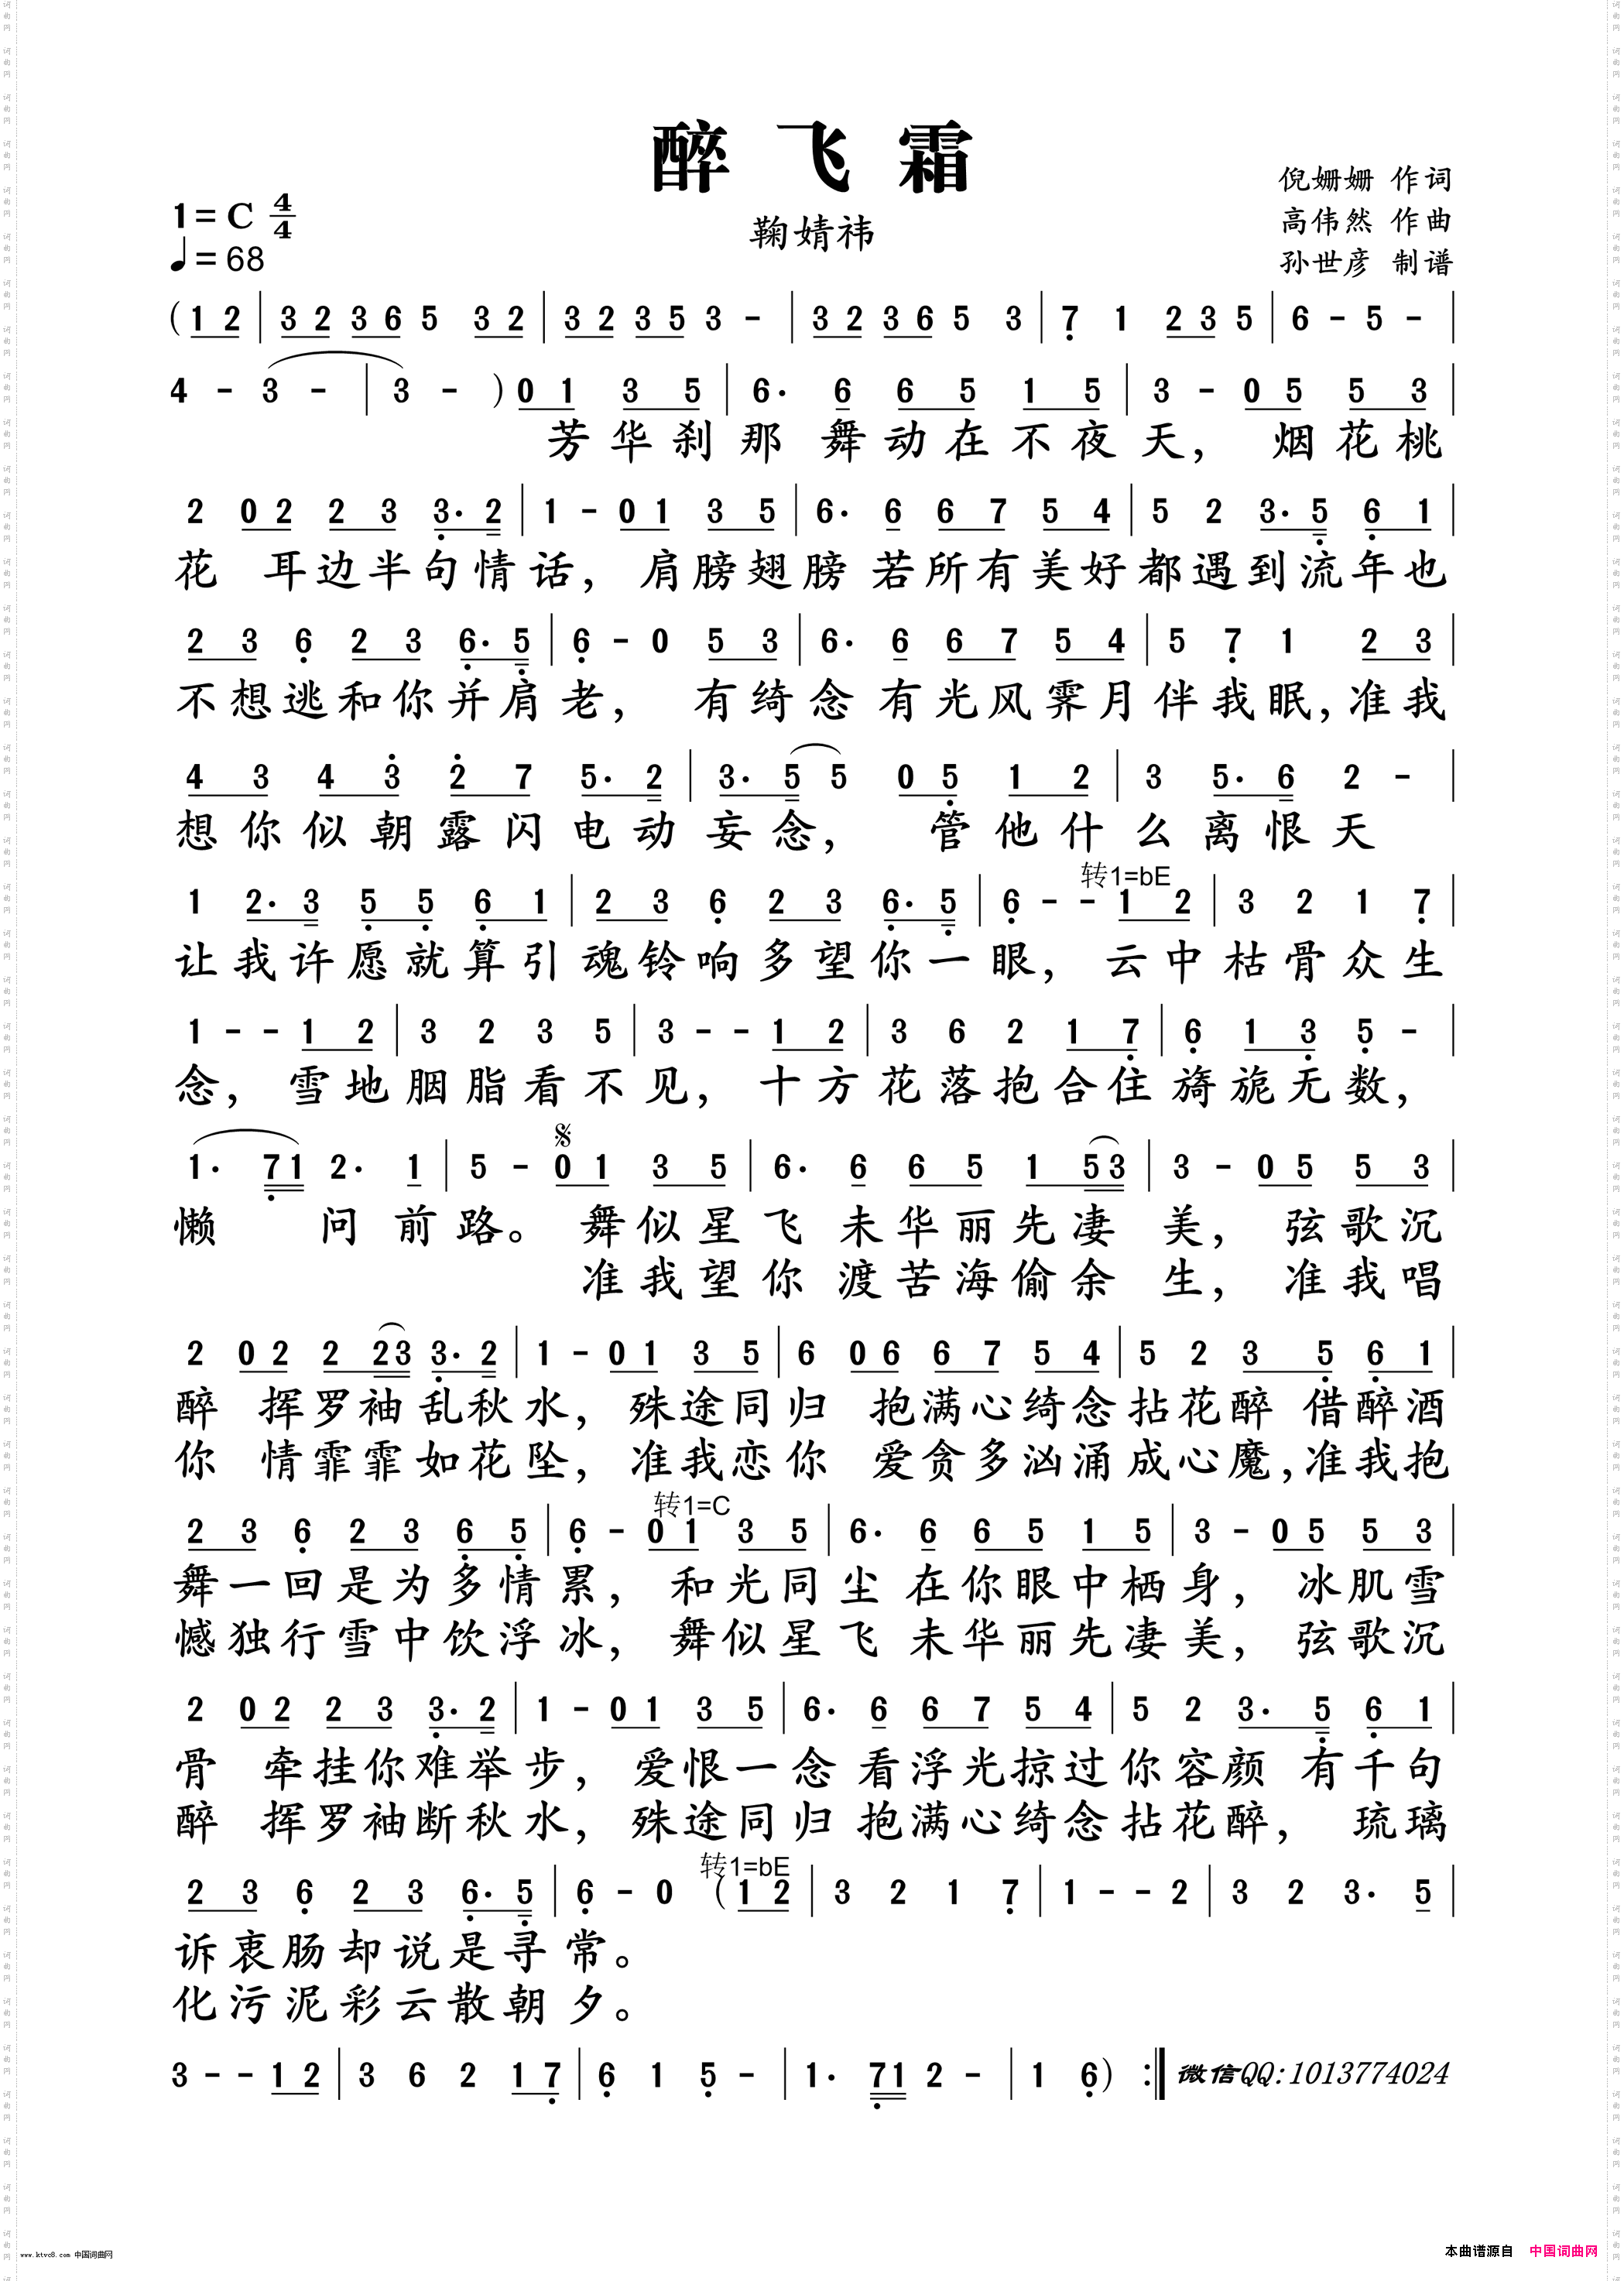 醉飞霜
鞠婧祎
倪姗姗 作词
高伟然 作曲
孙世彦 制谱
1=C 4/4
♩=68
(1 2 | 3 2 3 6 5 3 2 | 3 2 3 5 3 - | 3 2 3 6 5 3 | 7 1 2 3 5 | 6 - 5 - |
4 - 3 - | 3 - ) 0 1 3 5 | 6· 6 6 5 1 5 | 3 - 0 5 5 3 |
芳华刹那舞动在不夜天，烟花桃
2 0 2 2 3 3· 2 | 1 - 0 1 3 5 | 6· 6 6 7 5 4 | 5 2 3· 5 6 1 |
花 耳边半句情话，肩膀翅膀若所有美好都遇到流年也
2 3 6 2 3 6· 5 | 6 - 0 5 3 | 6· 6 6 7 5 4 | 5 7 1 2 3 |
不想逃和你并肩老，有绮念有光风霁月伴我眠，准我
4 3 4 3 2 7 5· 2 | 3· 5 5 0 5 1 2 | 3 5· 6 2 - |
想你似朝露闪电动妄念，管他什么离恨天
转1=bE
1 2· 3 5 5 6 1 | 2 3 6 2 3 6· 5 | 6 - - 1 2 | 3 2 1 7 |
让我许愿就算引魂铃响多望你一眼，云中枯骨众生
1 - - 1 2 | 3 2 3 5 | 3 - - 1 2 | 3 6 2 1 7 | 6 1 3 5 - |
念，雪地胭脂看不见，十方花落抱合住旖旎无数，
1· 7 1 2· 1 | 5 - 0 1 3 5 | 6· 6 6 5 1 5 3 | 3 - 0 5 5 3 |
懒 问前路。舞似星飞未华丽先凄美，弦歌沉
准我望你渡苦海偷余生，准我唱
2 0 2 2 2 3 3· 2 | 1 - 0 1 3 5 | 6 0 6 6 7 5 4 | 5 2 3 5 6 1 |
醉 挥罗袖乱秋水，殊途同归 抱满心绮念拈花醉 借醉酒
你 情霏霏如花坠，准我恋你 爱贪多汹涌成心魔，准我抱
转1=C
2 3 6 2 3 6 5 | 6 - 0 1 3 5 | 6· 6 6 5 1 5 | 3 - 0 5 5 3 |
舞一回是为多情累，和光同尘在你眼中栖身，冰肌雪
憾独行雪中饮浮冰，舞似星飞未华丽先凄美，弦歌沉
2 0 2 2 3 3· 2 | 1 - 0 1 3 5 | 6· 6 6 7 5 4 | 5 2 3· 5 6 1 |
骨 牵挂你难举步，爱恨一念看浮光掠过你容颜 有千句
醉 挥罗袖断秋水，殊途同归抱满心绮念拈花醉，琉璃
转1=bE
2 3 6 2 3 6· 5 | 6 - 0 (1 2 | 3 2 1 7 | 1 - - 2 | 3 2 3· 5 |
诉衷肠却说是寻常。
化污泥彩云散朝夕。
3 - - 1 2 | 3 6 2 1 7 | 6 1 5 - | 1· 7 1 2 - | 1 6 ) :‖ 微信QQ:1013774024
www.ktvc8.com 中国词曲网
本曲谱源自 中国词曲网